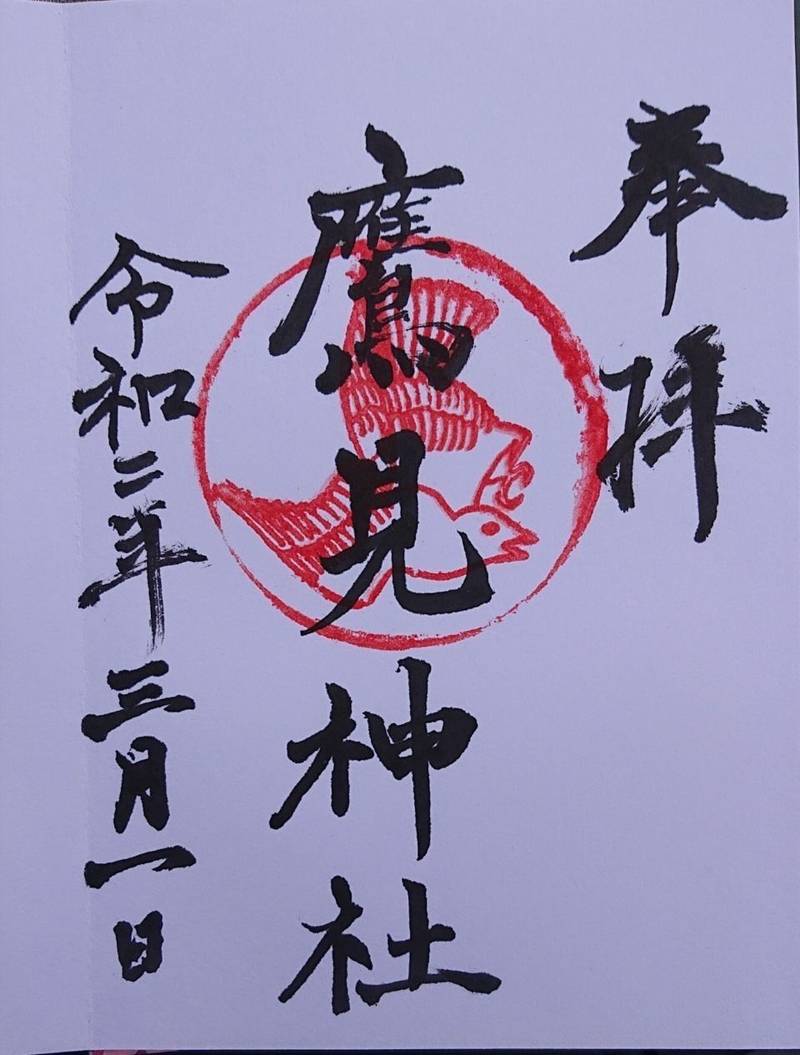 奉拝
鷹見神社
令和二年三月一日